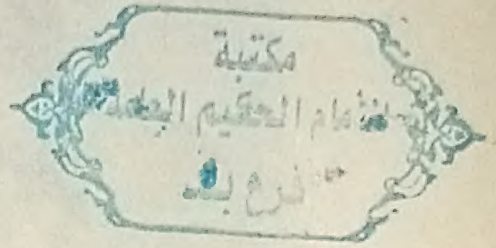 مكتبة
الإمام الحكيم العامة
فرع بلد